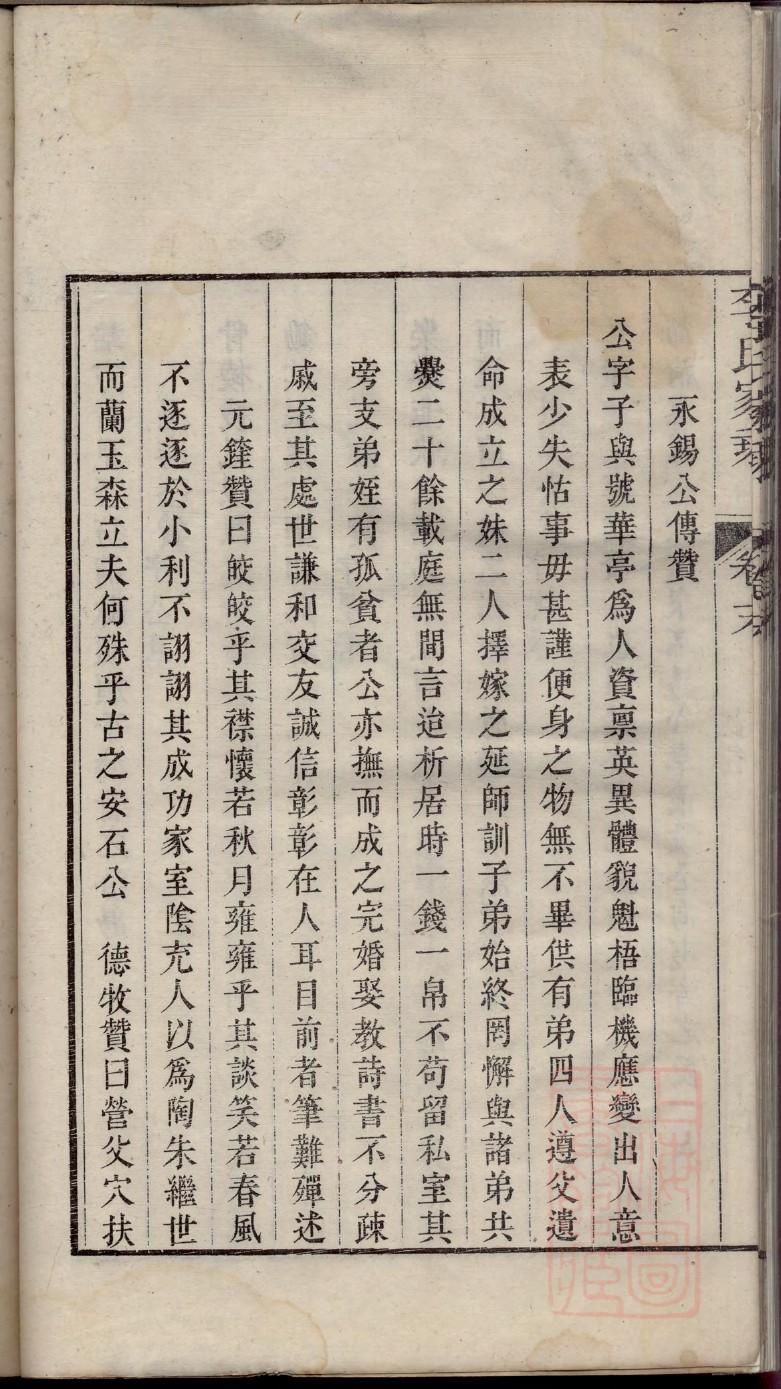 永錫公傳贊
公字子與號華亭爲人資禀英異體貌魁梧臨機應變出人意
表少失怙事毋甚謹便身之物無不畢供有弟四人遵父遺
命成立之妹二人擇嫁之延師訓子弟始終罔懈與諸弟共
爨二十餘載庭無間言迨析居時一錢一帛不苟留私室其
旁支弟姪有孤貧者公亦撫而成之完婚娶教詩書不分疎
戚至其處世謙和交友誠信彰彰在人耳目前者筆難殫述
元鋒贊曰皎皎乎其襟懷若秋月雍雍乎其談笑若春風
不逐逐於小利不詡詡其成功家室陰充人以爲陶朱繼世
而蘭玉森立夫何殊乎古之安石公 德牧贊曰營父穴扶